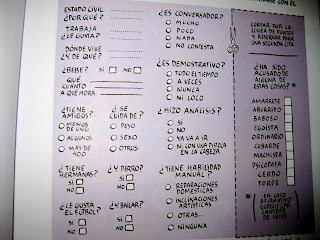 ESTADO CIVIL
¿POR QUÉ?
TRABAJA
¿LE GUSTA?
DÓNDE VIVE
¿Y DE QUE?
¿BEBE? SI NO
QUÉ
CUÁNTO
A QUÉ HORA
¿TIENE AMIGOS?
MENOS DE UNO
ALGUNOS
MAS DE 400
¿SE CUIDA DE?
PESO
SEXO
OTROS
¿TIENE HERMANAS?
SI
NO
¿Y PERRO?
SI
NO
¿LE GUSTA EL FÚTBOL?
SI
NO
¿Y BAILAR?
SI
NO
¿ES CONVERSADOR?
MUCHO
POCO
NADA
NO CONTESTA
¿ES DEMOSTRATIVO?
TODO EL TIEMPO
A VECES
NUNCA
NI LOCO
¿HIZO ANÁLISIS?
SI
NO
YA VA A IR
NI CON UNA PISTOLA EN LA CABEZA
¿TIENE HABILIDAD MANUAL?
REPARACIONES DOMÉSTICAS
INCLINACIONES ARTÍSTICAS
OTRAS...
NINGUNA
CON ÉL
CORTAR POR LA
LÍNEA DE PUNTOS
Y RESERVAR PARA
UNA SEGUNDA CITA
¿HA SIDO
ACUSADO DE
ALGUNA DE
ESTAS COSAS? *
AMARRETE
ABURRIDO
BABOSO
EGOISTA
ORDINARIO
COBARDE
MACHISTA
PSICOPATA
CERDO
TORPE
* (EN CASO
AFIRMATIVO
ESPECIFICAR
CANTIDAD
DE VECES)